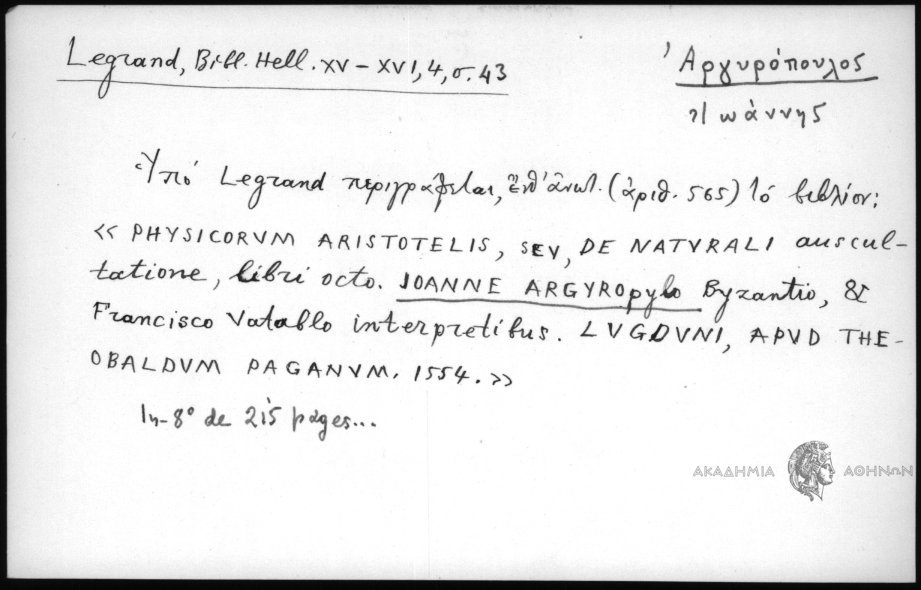 Legrand, Bibl. Hell. XV – XVI, 4, σ. 43
Ἀργυρόπουλος
Ἰωάννης
Ὑπό Legrand περιγράφεται, (ἀριθ. 565) τό βιβλίον:
« PHYSICORVM ARISTOTELIS, SEV, DE NATVRALI auscul-
tatione, libri octo. JOANNE ARGYROpylo Byzantio, &
Francisco Vatablo interpretibus. LVGDVNI, APVD THE-
OBALDVM PAGANVM. 1554. »
In-8° de 215 pages...
ΑΚΑΔΗΜΙΑ ΑΘΗΝΩΝ